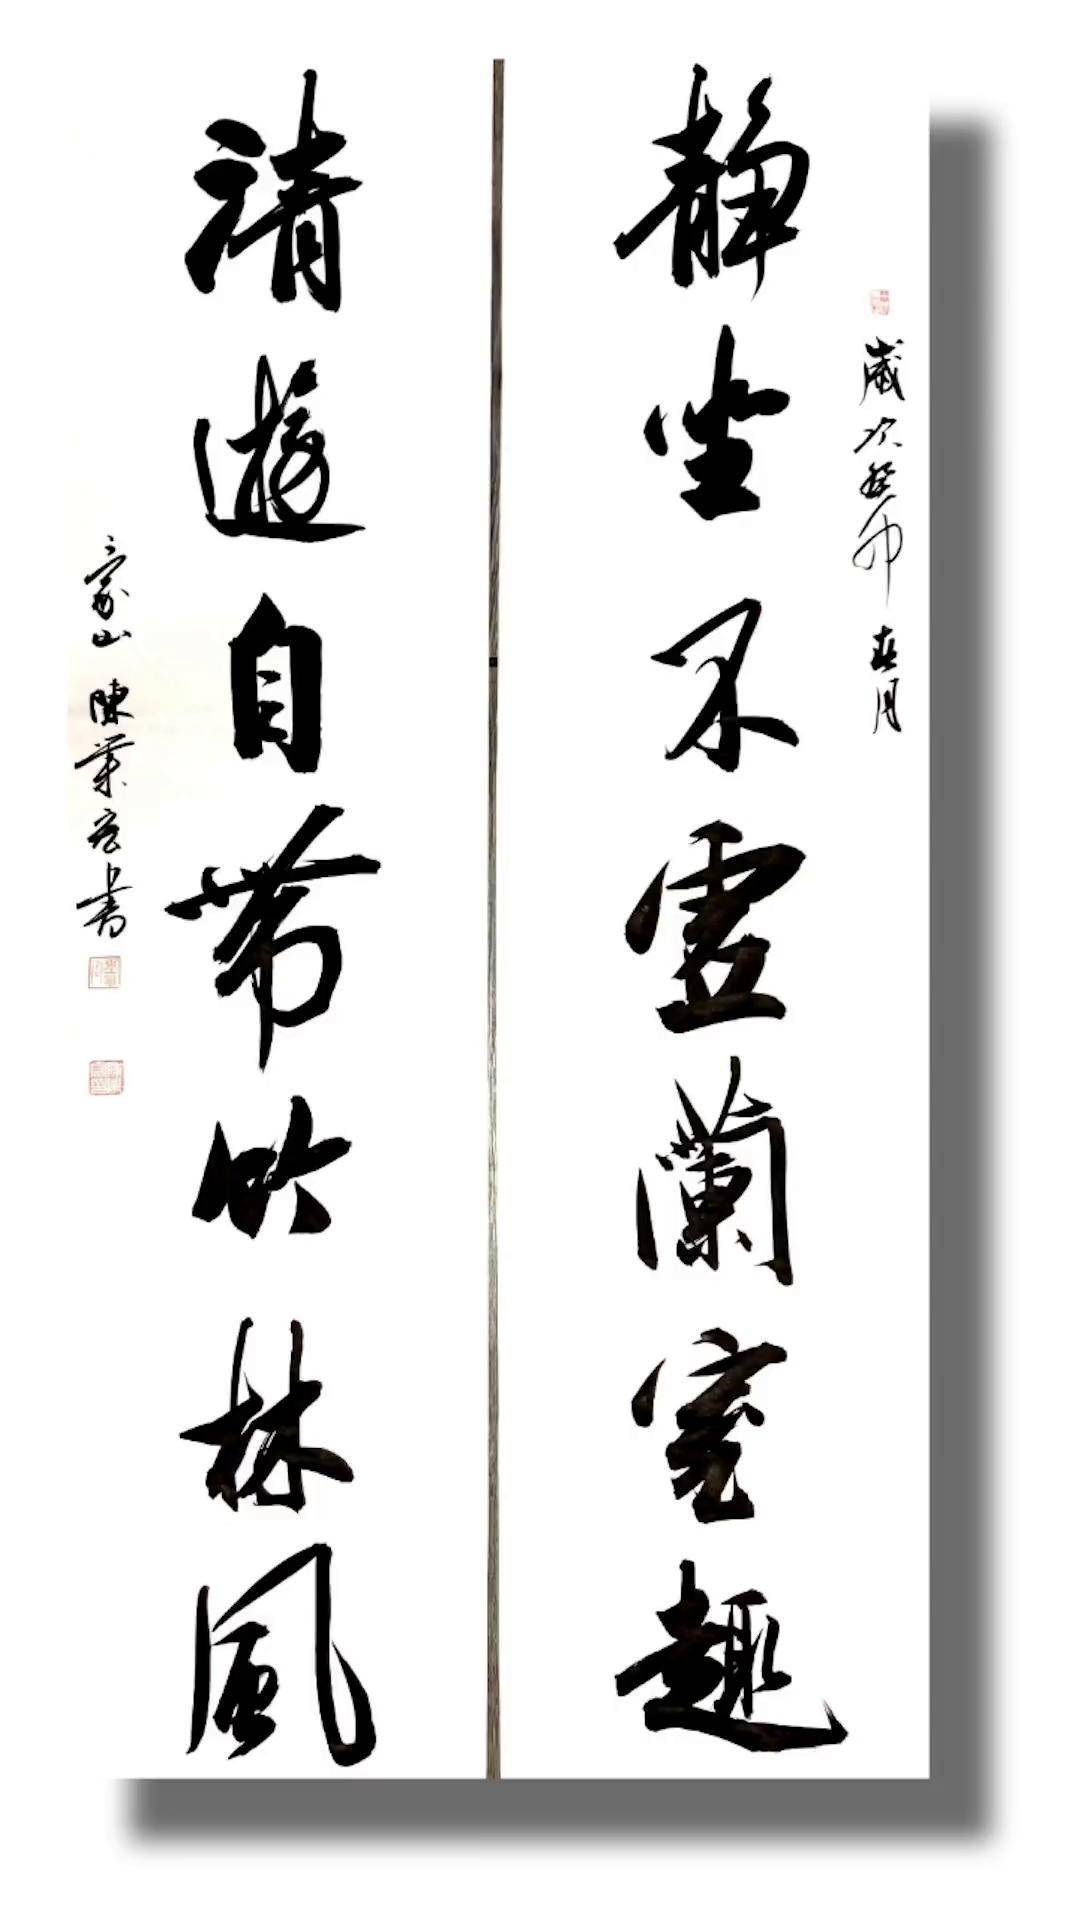 歲次癸卯春月
靜坐不虛蘭室趣
清遊自帶竹林風
山陳業宏書